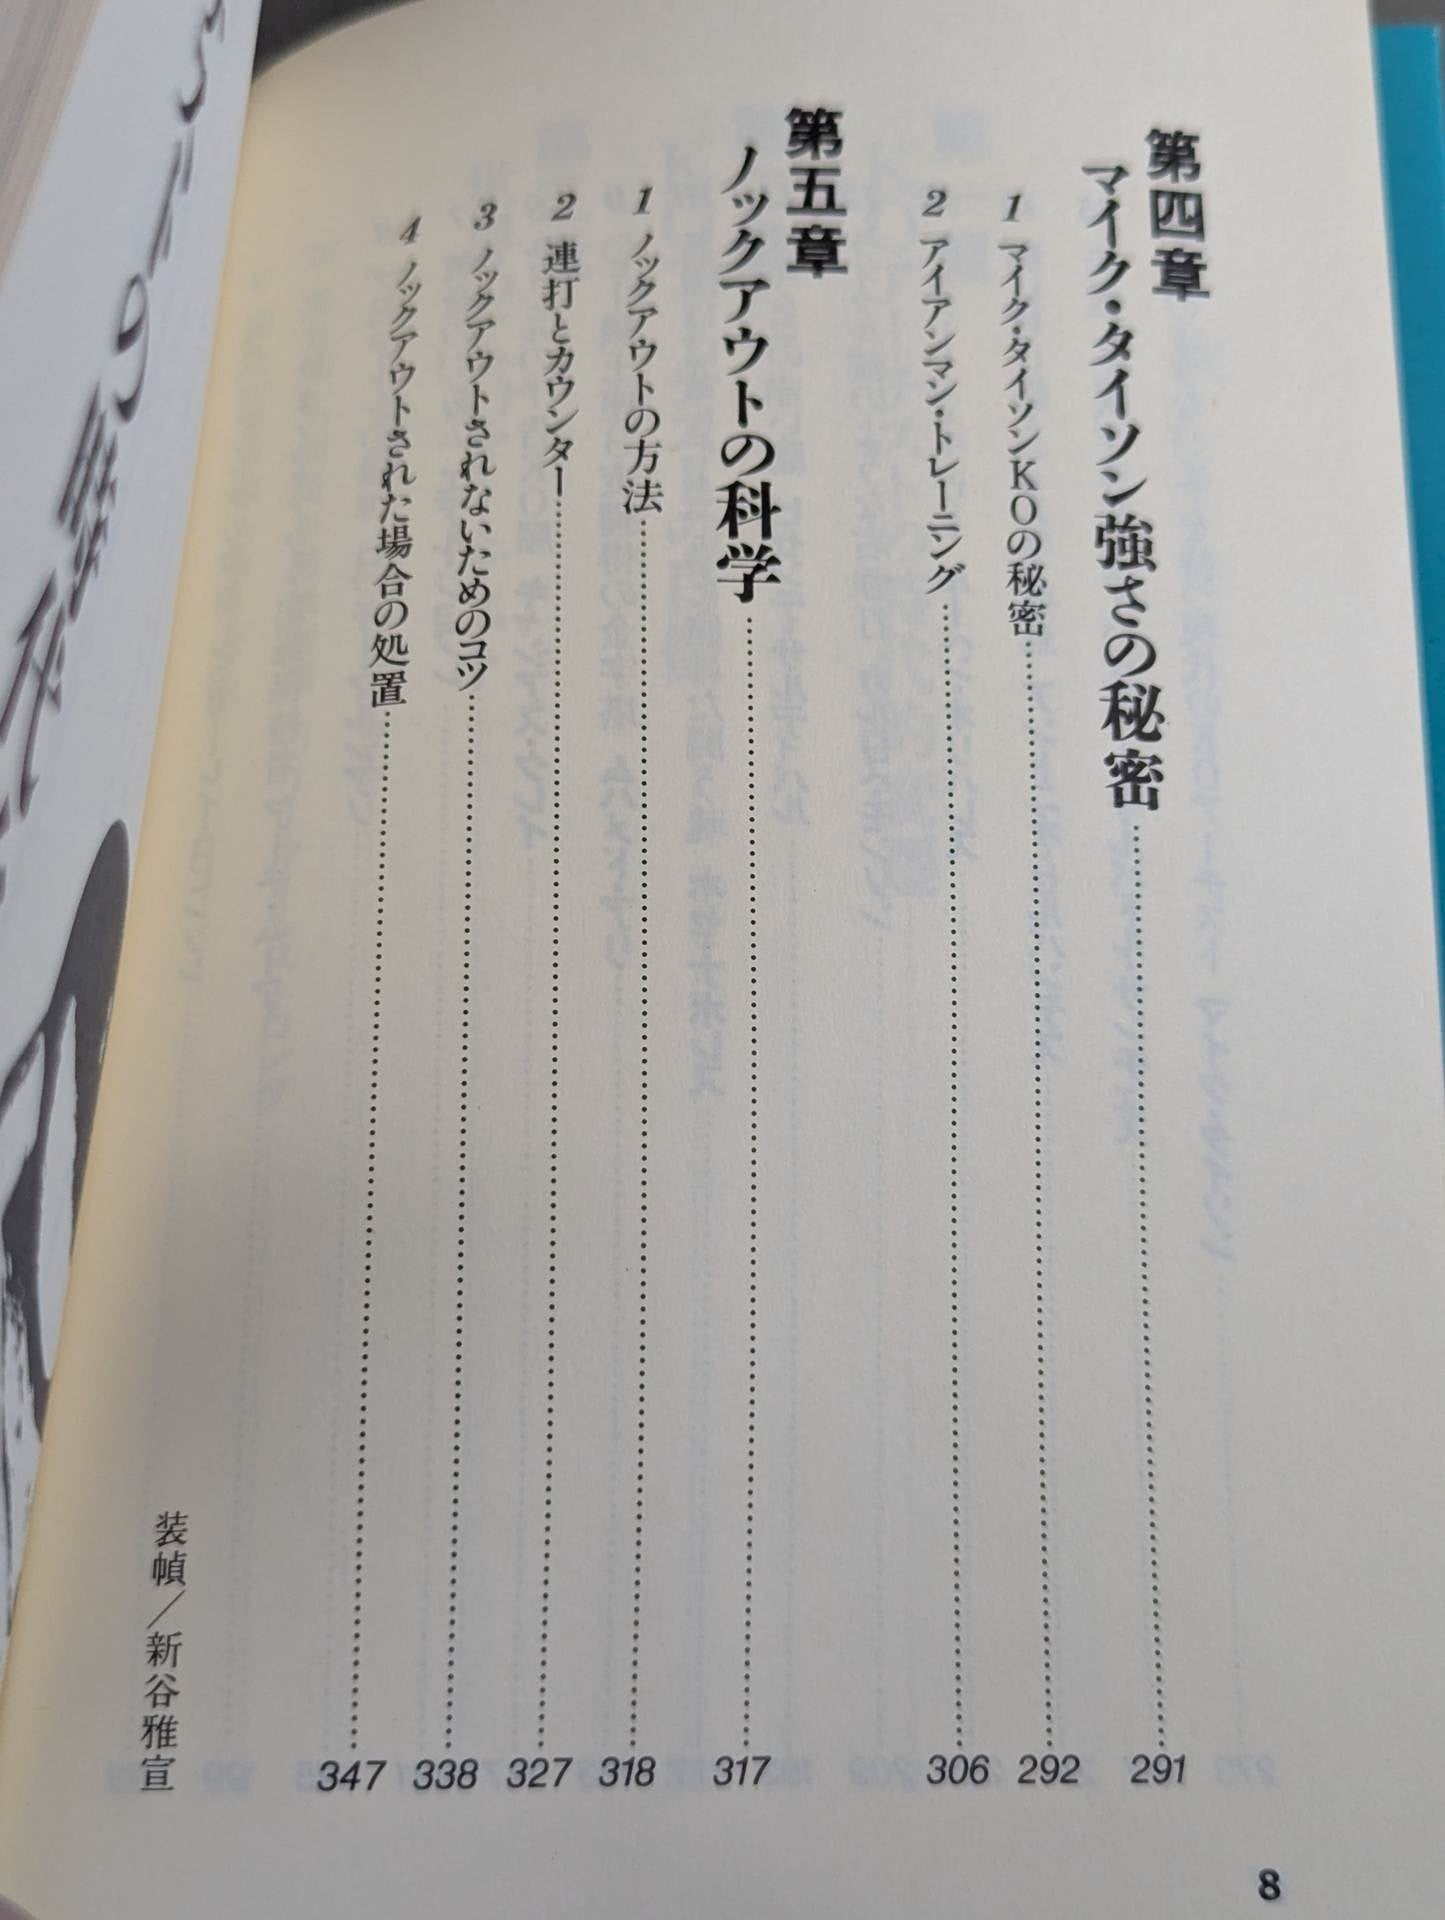 第四章
マイク・タイソン強さの秘密……291
1 マイク・タイソンKOの秘密……292
2 アイアンマン・トレーニング……306
第五章
ノックアウトの科学……317
1 ノックアウトの方法……318
2 連打とカウンター……327
3 ノックアウトされないためのコツ……338
4 ノックアウトされた場合の処置……347
装幀／新谷雅宣
8